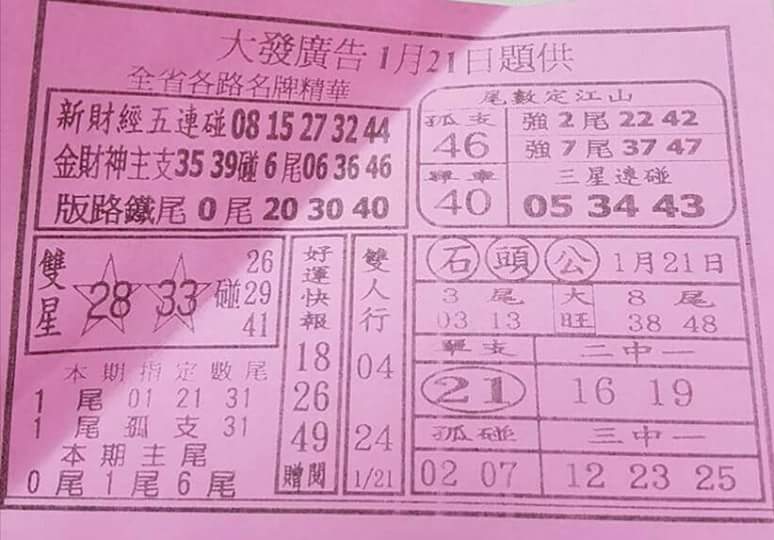 大發廣告1月21日題供
全省各路名牌精華
新財經五連碰08 15 27 32 44
金財神主支35 39碰6尾06 36 46
版路鐵尾 0尾 20 30 40
尾數定江山
孤支 強2尾 22 42
46 強7尾 37 47
聯車 三星連碰
40 05 34 43
雙星 28 33 碰 26 29 41
本期指定數尾
1 尾 01 21 31
1 尾 孤 支 31
本期主尾
0尾1尾6尾
好運快報
18
26
49
贈閱
雙人行
04
24
1/21
石頭公 1月21日
3尾 大旺 8尾
03 13 38 48
單支 二中一
21 16 19
孤碰 三中一
02 07 12 23 25